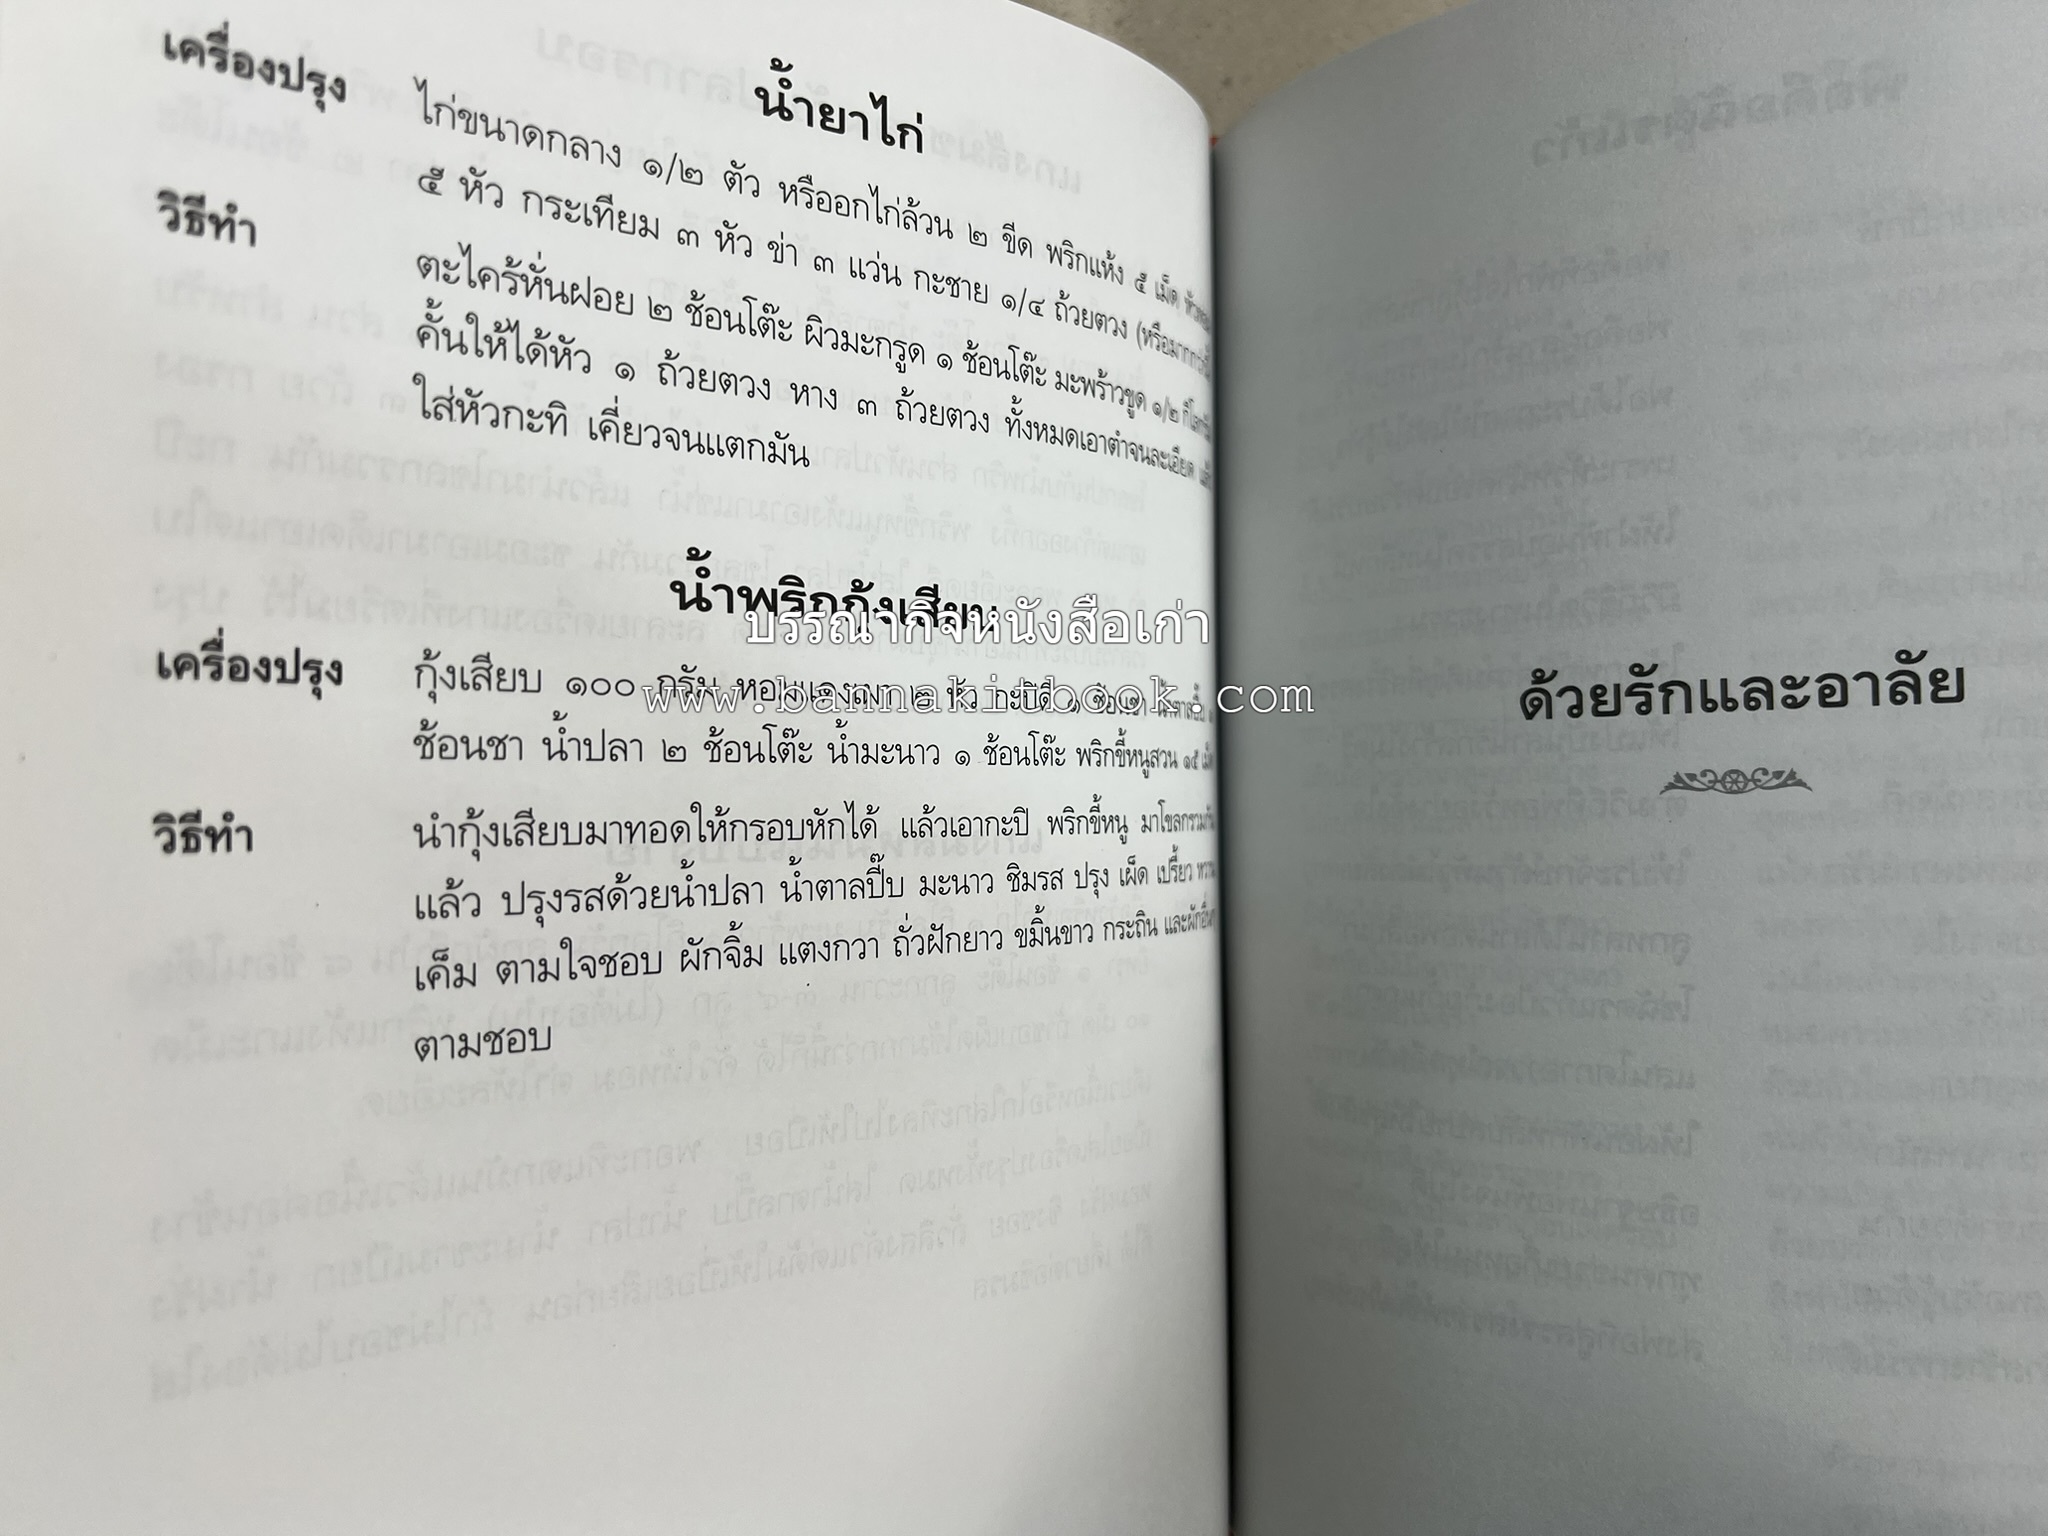 น้ำยาไก่
เครื่องปรุง ไก่ขนาดกลาง ๑/๒ ตัว หรืออกไก่ล้วน ๒ ขีด พริกแห้ง ๕ เม็ด
๕ หัว กระเทียม ๓ หัว ข่า ๓ แว่น กะชาย ๑/๔ ถ้วยตวง
วิธีทำ ตะไคร้หั่นฝอย ๒ ช้อนโต๊ะ ผิวมะกรูด ๑ ช้อนโต๊ะ มะพร้าวขูด ๑/๒
คั้นให้ได้หัว ๑ ถ้วยตวง หาง ๓ ถ้วยตวง ทั้งหมดเอาตำจนละเอียด
ใส่หัวกะทิ เคี่ยวจนแตกมัน
น้ำพริกกุ้งเสียบ
บรรณากิจหนังสือเก่า
เครื่องปรุง กุ้งเสียบ ๑๐๐ กรัม ๒ หัว กะปิดี ๑ ช้อนชา
www.bannakitbook.com
ช้อนชา น้ำปลา ๒ ช้อนโต๊ะ น้ำมะนาว ๑ ช้อนโต๊ะ พริกขี้หนูสวน ๑๕
วิธีทำ นำกุ้งเสียบมาทอดให้กรอบหักได้ แล้วเอากะปิ พริกขี้หนู
แล้ว ปรุงรสด้วยน้ำปลา น้ำตาลปี๊บ มะนาว ชิมรส ปรุง เผ็ด เปรี้ยว
เค็ม ตามใจชอบ ผักจิ้ม แตงกวา ถั่วฝักยาว ขมิ้นขาว กระถิน
ตามชอบ
ด้วยรักและอาลัย